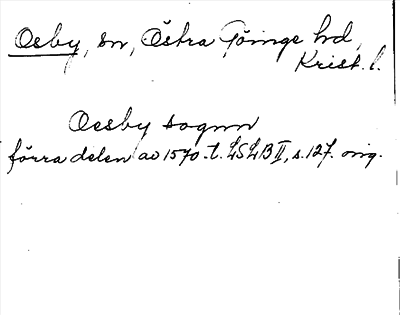 Osby, sn, Östra Göinge hd,
Krist. l.
Oesby sognn
förra delen av 1570-t. LSLB II, s. 127. orig.